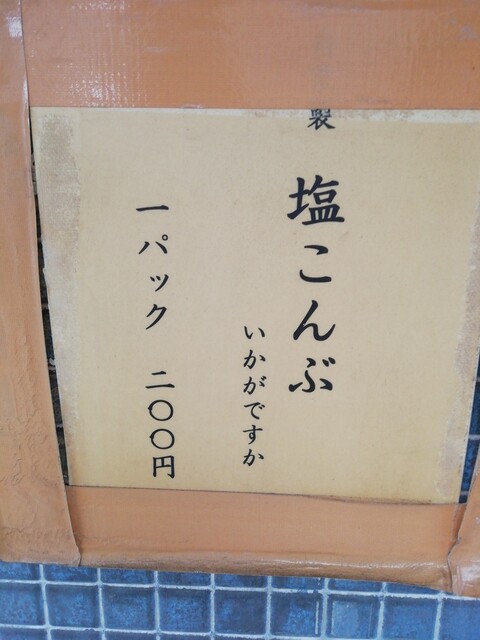 製 塩こんぶ
いかがですか
一パック 二〇〇円